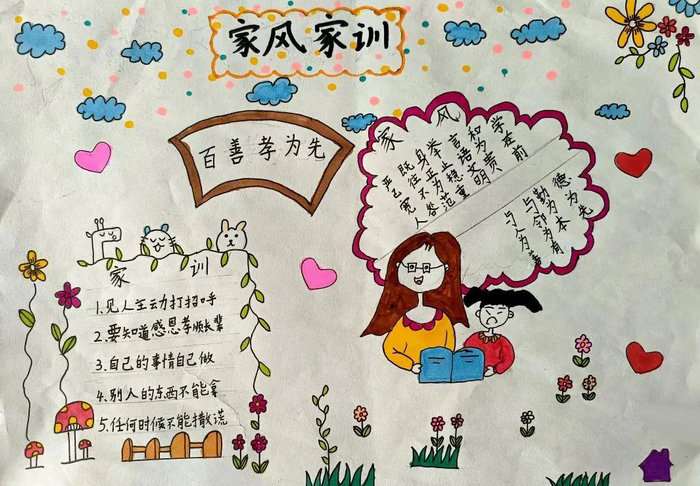 家风家训
百善孝为先
家 风
严己宽人
既往不咎
身正为范
举止稳重
言语文明
和为贵
学在前
与人为善
与邻为有
勤为本
德为先
家 训
1.见人主动打招呼
2.要知道感恩孝顺长辈
3.自己的事情自己做
4.别人的东西不能拿
5.任何时候不能撒谎